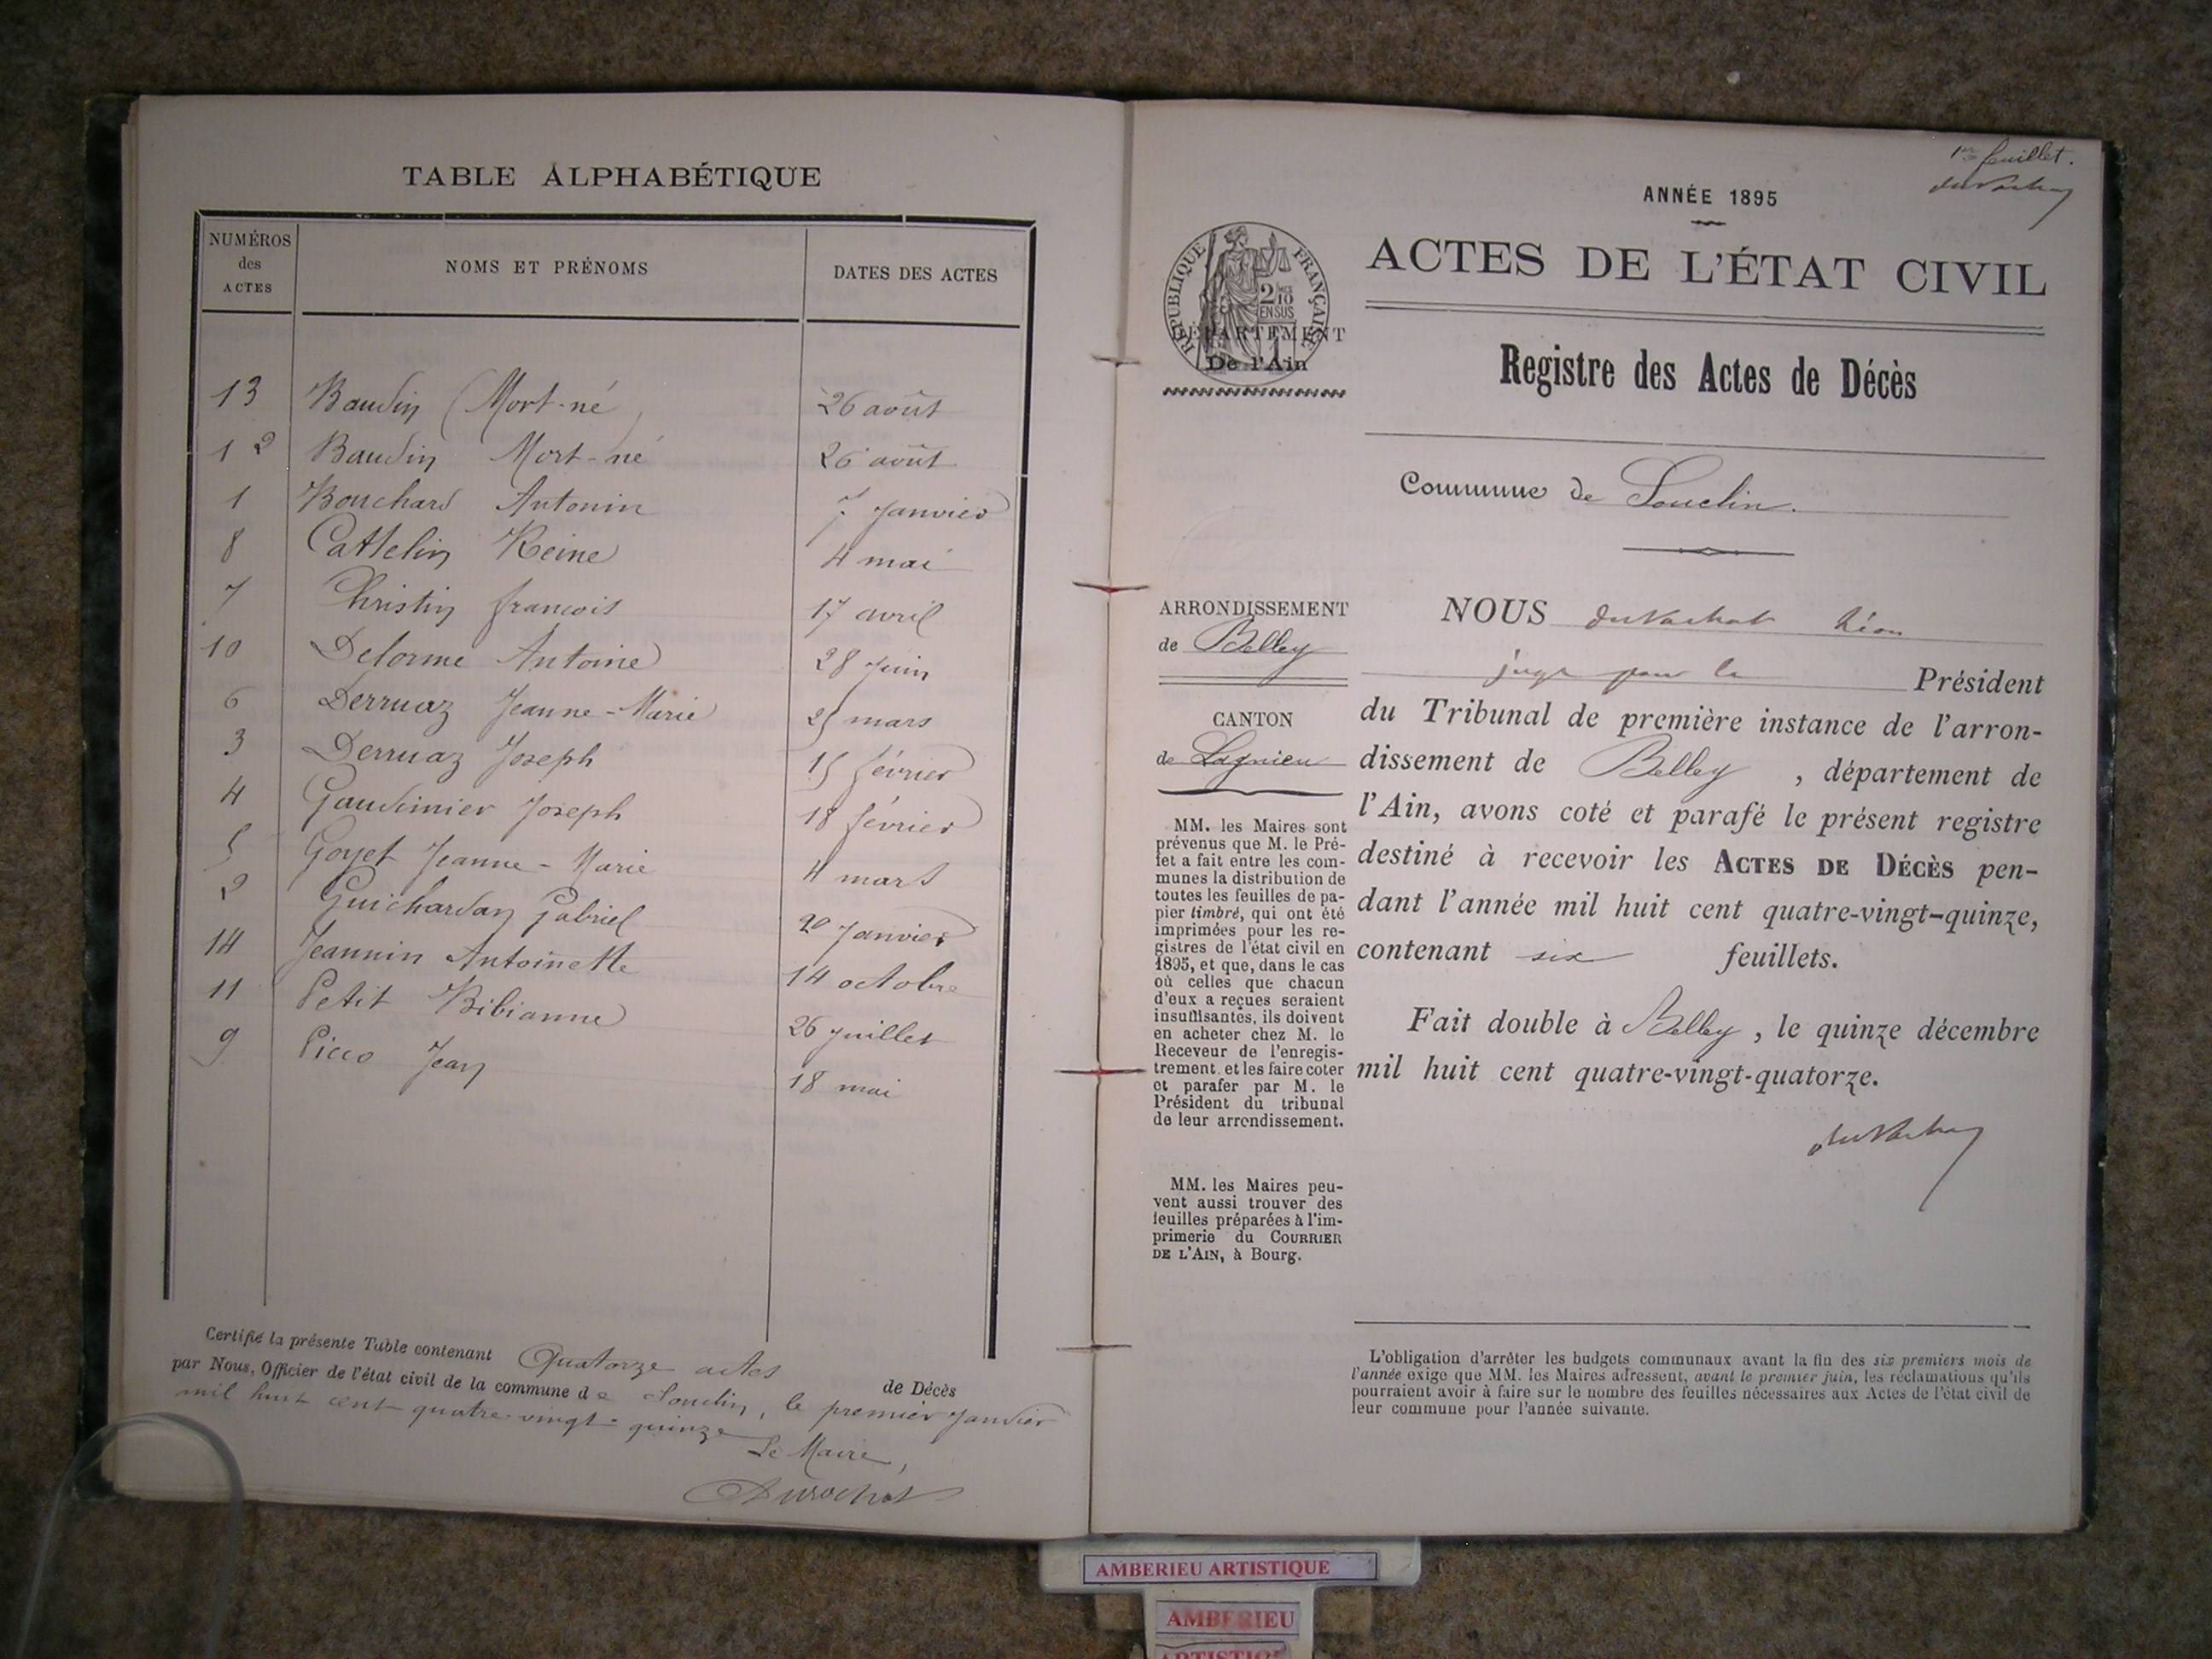 TABLE ALPHABÉTIQUE
NUMÉROS des ACTES
NOMS ET PRÉNOMS
DATES DES ACTES
13 Baudin (Mort-né) 26 août
12 Baudin Mort-né 26 août
1 Bouchard Antonin 7 Janvier
8 Cattelin Reine 4 mai
7 Christin françois 17 avril
10 Delorme Antoine 28 Juin
6 Derruaz Jeanne-Marie 25 mars
3 Derruaz Joseph 15 février
4 Gaudinier Joseph 18 février
5 Goyet Jeanne-Marie 4 mars
2 Guichardan Gabriel 20 Janvier
14 Jeannin Antoinette 14 octobre
11 Petit Bibianne 26 Juillet
9 Picco Jean 18 mai
Certifié la présente Table contenant Quatorze actes de Décès
par Nous, Officier de l'état civil de la commune de Souclin, le premier Janvier
mil huit cent quatre-vingt-quinze
Le Maire,
1er feuillet.
ANNÉE 1895
ACTES DE L'ÉTAT CIVIL
RÉPUBLIQUE FRANÇAISE
DÉPARTEMENT
De l'Ain
Registre des Actes de Décès
Commune de Souclin.
ARRONDISSEMENT
de Belley
CANTON
de Lagnieu
MM. les Maires sont
prévenus que M. le Pré-
fet a fait entre les com-
munes la distribution de
toutes les feuilles de pa-
pier timbré, qui ont été
imprimées pour les re-
gistres de l'état civil en
1895, et que, dans le cas
où celles que chacun
d'eux a reçues seraient
insuffisantes, ils doivent
en acheter chez M. le
Receveur de l'enregis-
trement et les faire coter
et parafer par M. le
Président du tribunal
de leur arrondissement.
MM. les Maires peu-
vent aussi trouver des
feuilles préparées à l'im-
primerie du COURRIER
DE L'AIN, à Bourg.
NOUS duVachat Léon
juge pour le Président
du Tribunal de première instance de l'arron-
dissement de Belley, département de
l'Ain, avons coté et parafé le présent registre
destiné à recevoir les ACTES DE DÉCÈS pen-
dant l'année mil huit cent quatre-vingt-quinze,
contenant six feuillets.
Fait double à Belley, le quinze décembre
mil huit cent quatre-vingt-quatorze.
L'obligation d'arrêter les budgets communaux avant la fin des six premiers mois de
l'année exige que MM. les Maires adressent, avant le premier juin, les réclamations qu'ils
pourraient avoir à faire sur le nombre des feuilles nécessaires aux Actes de l'état civil de
leur commune pour l'année suivante.
AMBERIEU ARTISTIQUE
AMBERIEU
ARTISTIQUE